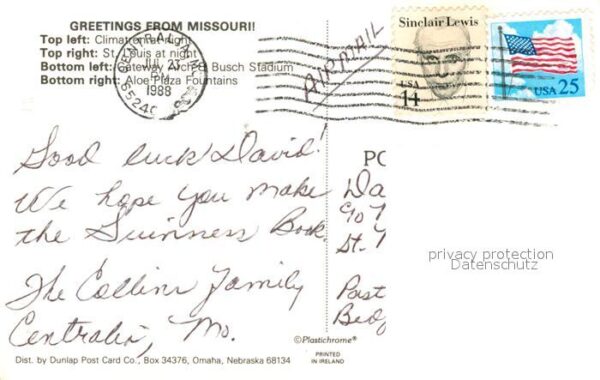 GREETINGS FROM MISSOURI!
Top left: Climatron at night
Top right: St. Louis at night
Bottom left: Gateway Busch Stadium
Bottom right: Aloe Plaza Fountains
CENTRALIA
JUL 23
PM
1988
65240
AIR MAIL
Sinclair Lewis
USA
14
USA 25
Good luck David!
We hope you make
the Guinness Book.
The Collins Family
Centralia, Mo.
PO
Da
St.
Past
privacy protection
Datenschutz
©Plastichrome®
PRINTED
IN IRELAND
Dist. by Dunlap Post Card Co., Box 34376, Omaha, Nebraska 68134